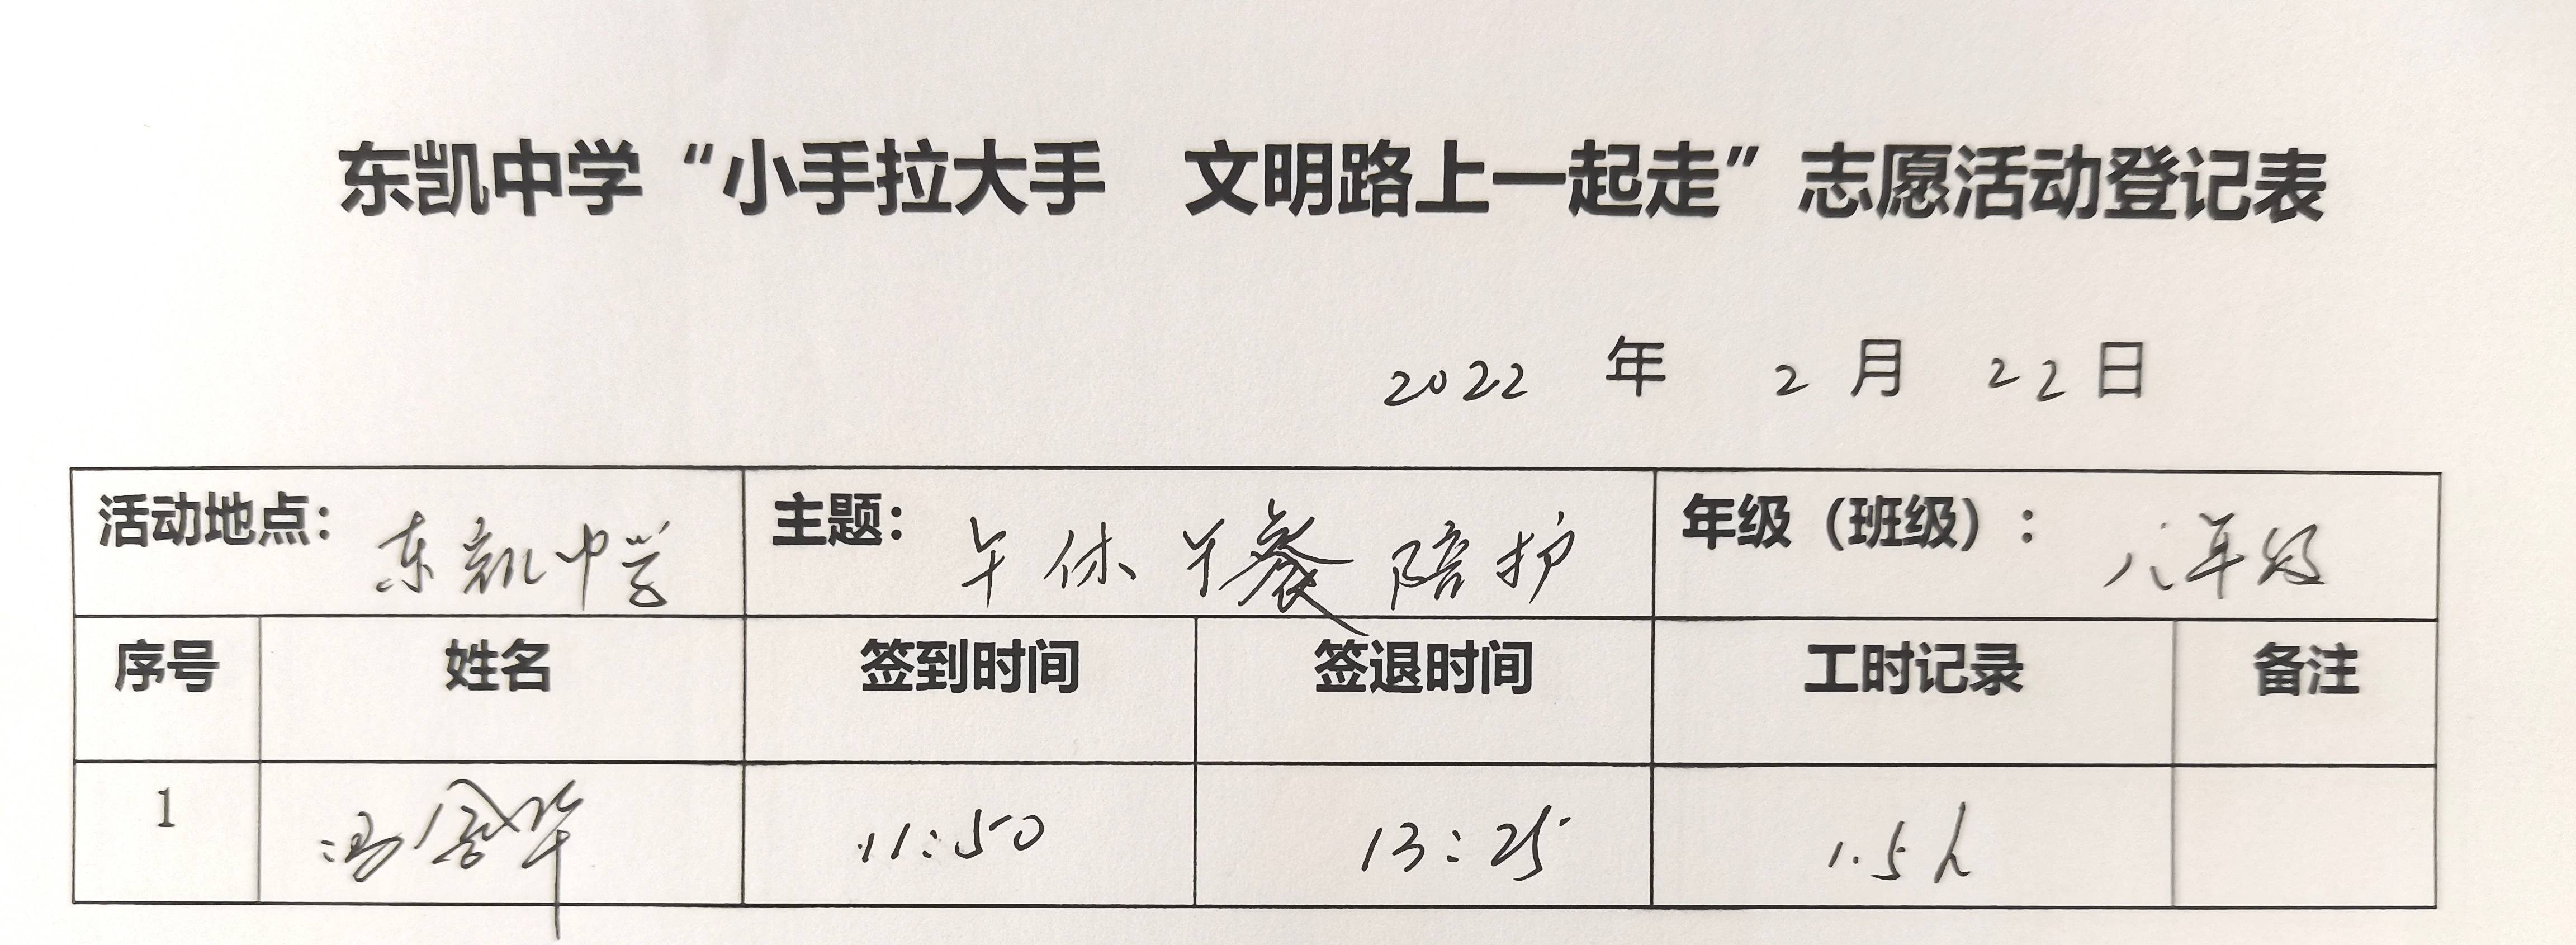 东凯中学“小手拉大手 文明路上一起走”志愿活动登记表
2022 年 2 月 22 日
活动地点： 东凯中学 主题： 午休午餐陪护 年级（班级）： 八年级
序号 姓名 签到时间 签退时间 工时记录 备注
1 冯金华 11:50 13:25 1.5h